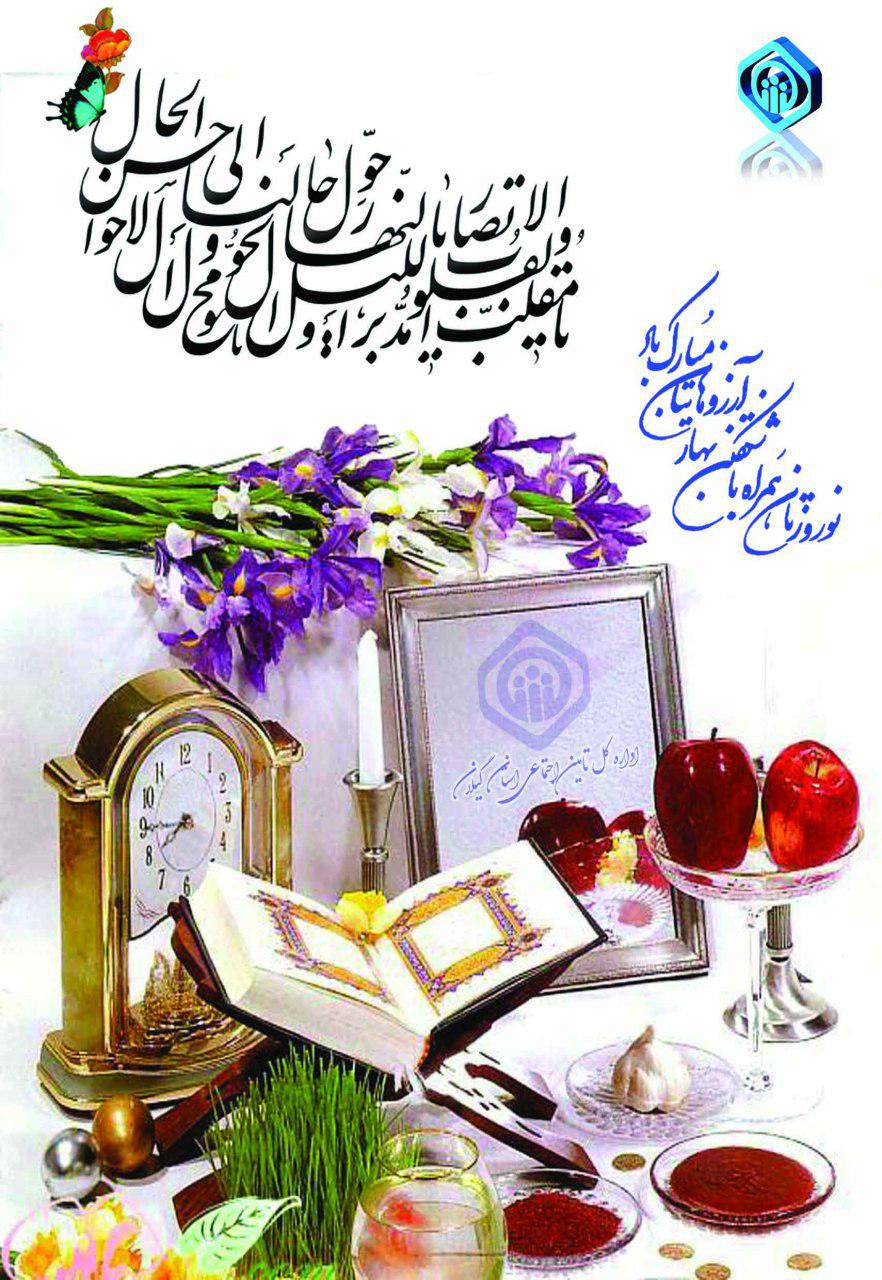 یا مقلب القلوب والابصار
یا مدبر اللیل و النهار
یا محول الحول و الاحوال
حول حالنا الی احسن الحال
نوروزتان همراه با
شکفتن بهار
آرزوهایتان
مبارک باد
اداره کل تامین اجتماعی استان گیلان
12
10
9
8
7
6